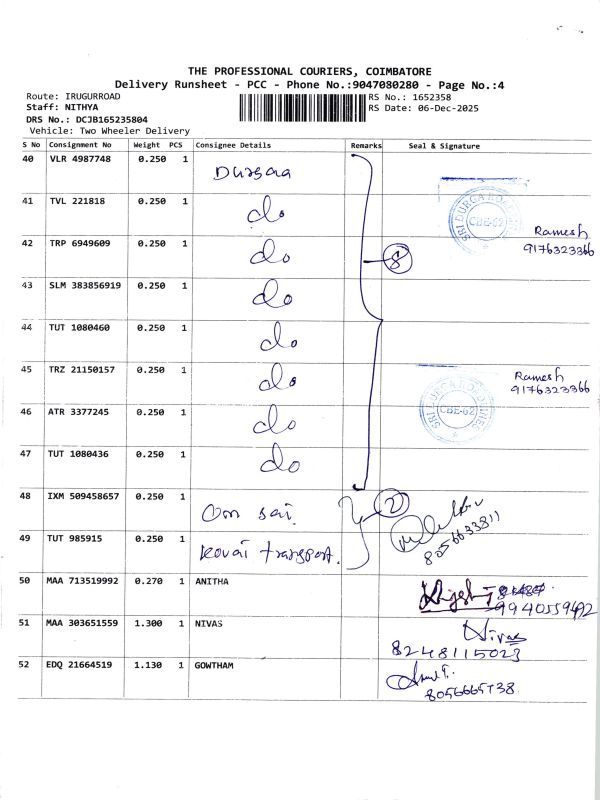 THE PROFESSIONAL COURIERS, COIMBATORE
Delivery Runsheet - PCC - Phone No.:9047080280 - Page No.:4
Route: IRUGURROAD
Staff: NITHYA
DRS No.: DCJB165235804
Vehicle: Two Wheeler Delivery
RS No.: 1652358
RS Date: 06-Dec-2025
S No Consignment No Weight PCS Consignee Details Remarks Seal & Signature
40 VLR 4987748 0.250 1
41 TVL 221818 0.250 1 do
SRI DURGA CBE-62
Ramesh
9176323366
42 TRP 6949609 0.250 1 do 8
43 SLM 383856919 0.250 1 do
44 TUT 1080460 0.250 1 do
45 TRZ 21150157 0.250 1 do
Ramesh
9176323366
46 ATR 3377245 0.250 1 do
SRI DURGA CBE-62
47 TUT 1080436 0.250 1 do
48 IXM 509458657 0.250 1 Om sai 2
8056633811
49 TUT 985915 0.250 1 kovai transport.
50 MAA 713519992 0.270 1 ANITHA
9940559492
51 MAA 303651559 1.300 1 NIVAS Nivas
8248115023
52 EDQ 21664519 1.130 1 GOWTHAM
8056665738